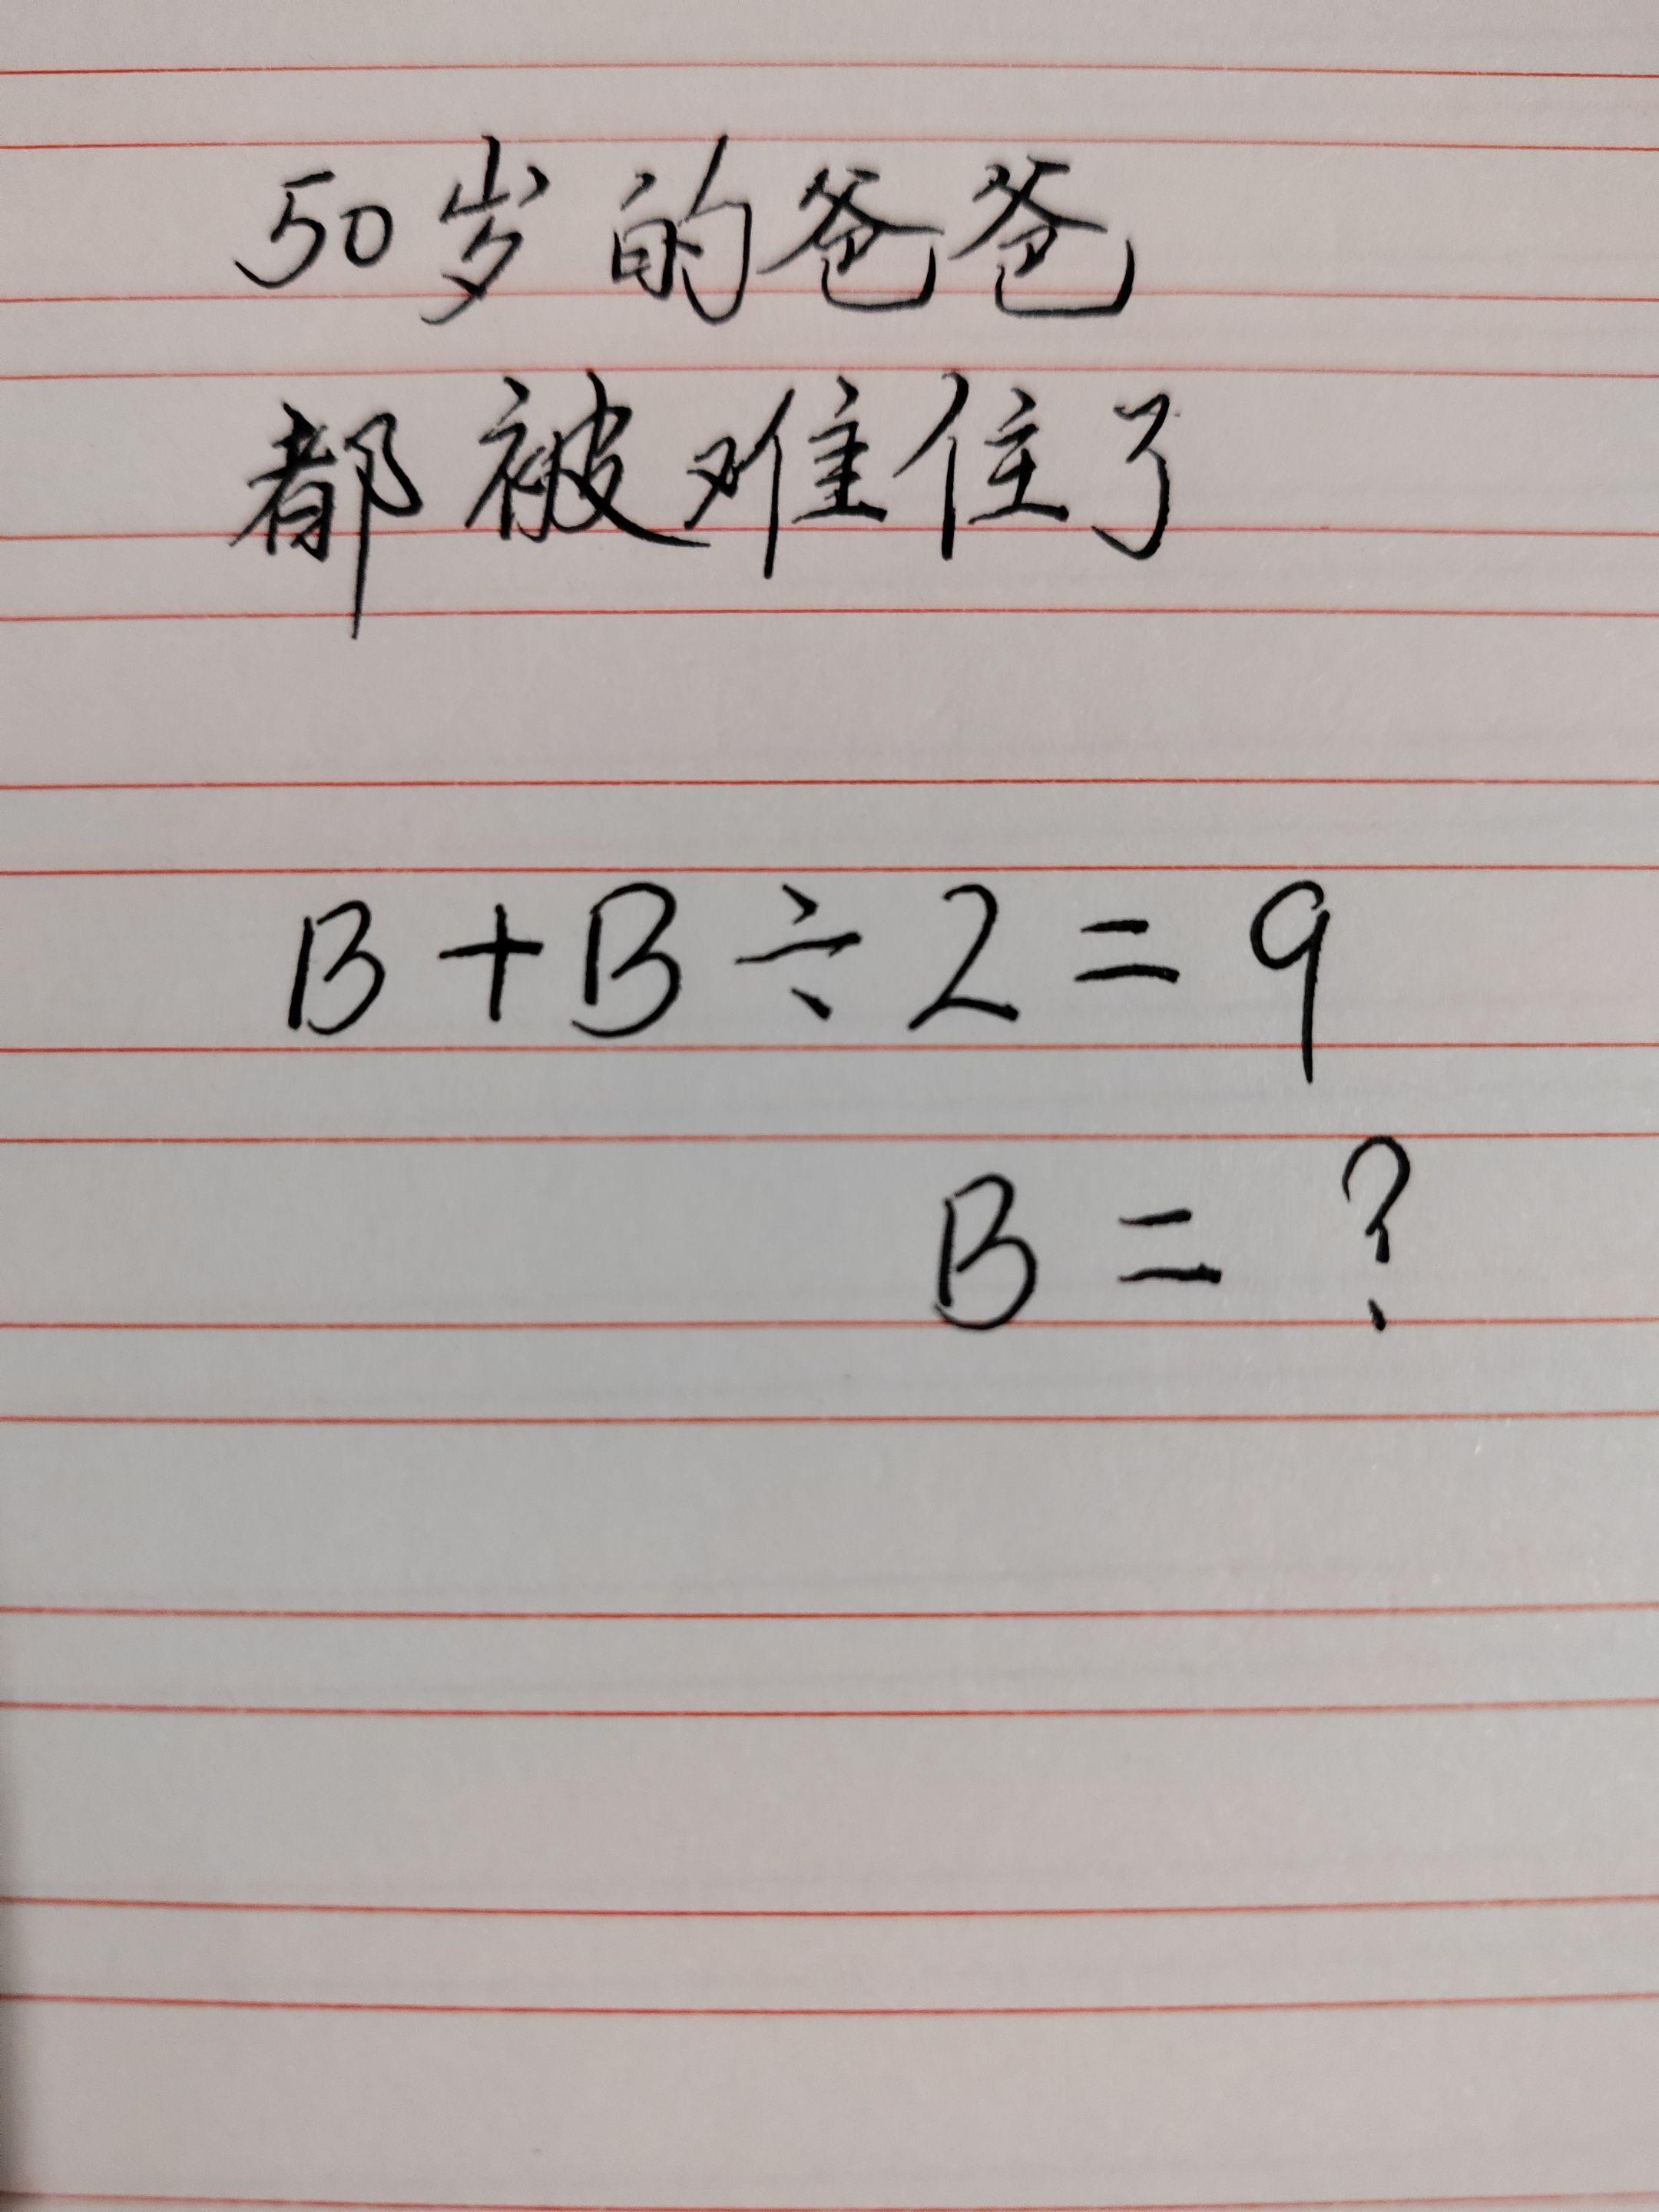 50岁的爸爸
都被难住了
B+B÷2=9
B=?